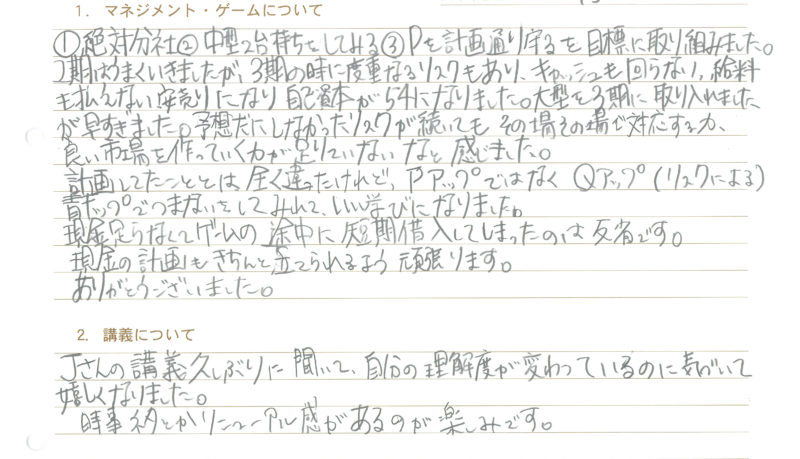 1. マネジメント・ゲームについて
①絶対分社②中型2台持ちをしてみる③Pを計画通り守るを目標に取り組みました。
2期はうまくいきましたが、3期の時に度重なるリスクもあり、キャッシュも回らない、給料
も払えない安売りになり自己資本が54になりました。大型を3期に取り入れました
が早すぎました。予想だにしなかったリスクが続いてもその場その場で対応する力、
良い市場を作っていく力が足りていないなと感じました。
計画してたこととは全く違ったけれど、Pアップではなく Qアップ(リスクによる)
青チップでつまないをしてみれて、いい学びになりました。
現金足らなくてゲームの途中に短期借入してしまったのは反省です。
現金の計画もきちんと立てられるよう頑張ります。
ありがとうございました。
2. 講義について
Jさんの講義久しぶりに聞いて、自分の理解度が変わっているのに気づいて
嬉しくなりました。
時事ネタとかリニューアル感があるのが楽しみです。